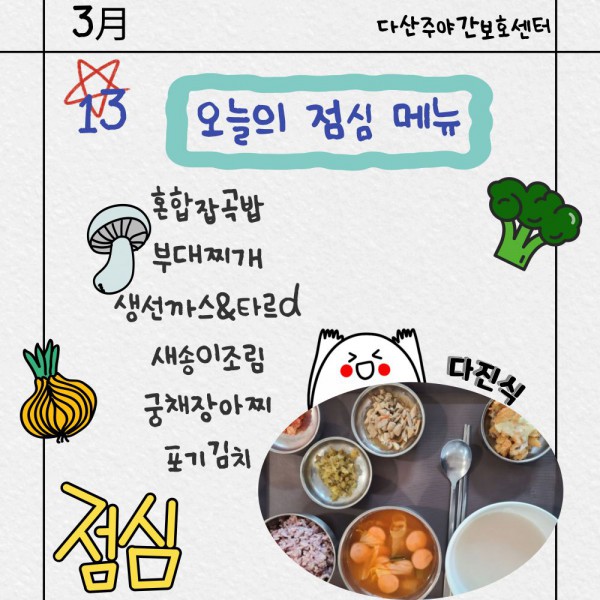 3月
다산주야간보호센터
13
오늘의 점심 메뉴
혼합잡곡밥
부대찌개
생선까스&타르d
새송이조림
궁채장아찌
포기김치
다진식
점심